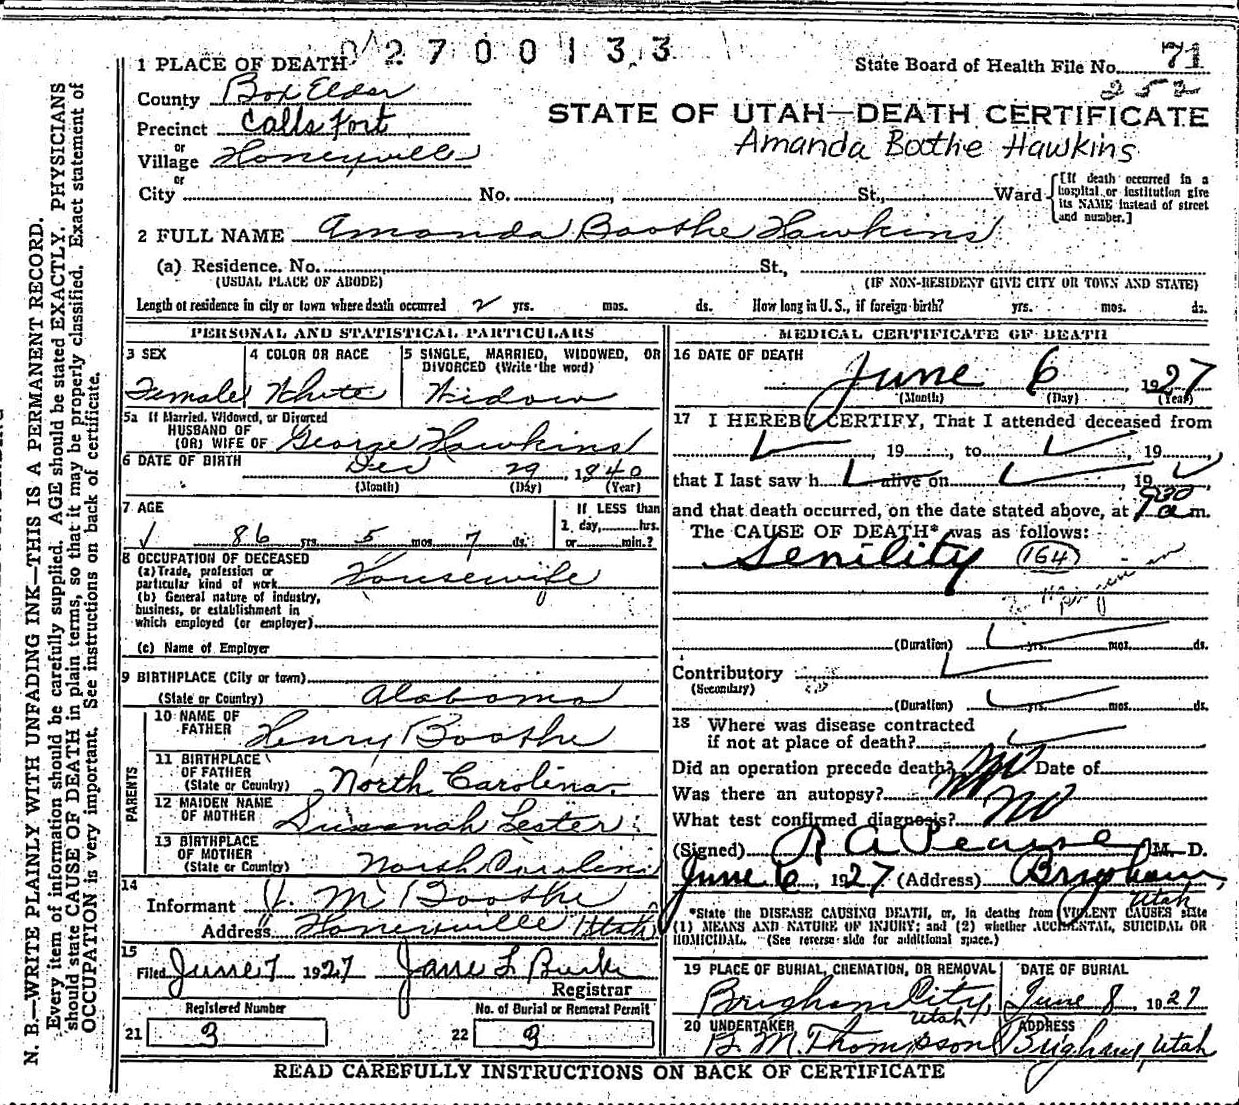 2 7 0 0 1 3 3
1 PLACE OF DEATH
State Board of Health File No. 71
252
County Box Elder
STATE OF UTAH—DEATH CERTIFICATE
Precinct Calls Fort
Amanda Boothe Hawkins
or
Village Honeyville
or
City No. , St., Ward
[If death occurred in a hospital or institution give its NAME instead of street and number.]
2 FULL NAME Amanda Boothe Hawkins
(a) Residence. No. St.,
(USUAL PLACE OF ABODE) (IF NON-RESIDENT GIVE CITY OR TOWN AND STATE)
Length of residence in city or town where death occurred 2 yrs. mos. ds. How long in U. S., if foreign birth? yrs. mos. ds.
PERSONAL AND STATISTICAL PARTICULARS
3 SEX
Female
4 COLOR OR RACE
White
5 SINGLE, MARRIED, WIDOWED, OR DIVORCED (Write the word)
Widow
5a If Married, Widowed, or Divorced
HUSBAND OF
(OR) WIFE OF George Hawkins
6 DATE OF BIRTH Dec 29, 1840
(Month) (Day) (Year)
7 AGE
86 yrs. 5 mos. 7 ds.
If LESS than
1 day, hrs.
or min.?
8 OCCUPATION OF DECEASED
(a) Trade, profession or
particular kind of work Housewife
(b) General nature of industry,
business, or establishment in
which employed (or employer)
(c) Name of Employer
9 BIRTHPLACE (City or town)
(State or Country) Alabama
PARENTS
10 NAME OF
FATHER Henry Boothe
11 BIRTHPLACE
OF FATHER
(State or Country) North Carolina.
12 MAIDEN NAME
OF MOTHER Susanah Lester
13 BIRTHPLACE
OF MOTHER
(State or Country) North Carolina
14
Informant J. M Boothe
Address Honeyville Utah
15
Filed June 7 1927 Jane L Burke
Registrar
Registered Number
21 3
No. of Burial or Removal Permit
22 3
MEDICAL CERTIFICATE OF DEATH
16 DATE OF DEATH
June 6 1927
(Month) (Day) (Year)
17 I HEREBY CERTIFY, That I attended deceased from
, 19 , to , 19 ,
that I last saw h alive on , 19
and that death occurred, on the date stated above, at 930 a m.
The CAUSE OF DEATH* was as follows:
Senility (164)
(Duration) yrs. mos. ds.
Contributory
(Secondary)
(Duration) yrs. mos. ds.
18 Where was disease contracted
if not at place of death?
Did an operation precede death? No Date of
Was there an autopsy? No
What test confirmed diagnosis?
(Signed) R A Pearse M. D.
June 6, 1927 (Address) Brigham, Utah
*State the DISEASE CAUSING DEATH, or, in deaths from VIOLENT CAUSES state
(1) MEANS AND NATURE OF INJURY; and (2) whether ACCIDENTAL, SUICIDAL OR
HOMICIDAL. (See reverse side for additional space.)
19 PLACE OF BURIAL, CREMATION, OR REMOVAL
Brigham City, Utah
DATE OF BURIAL
June 8, 1927
20 UNDERTAKER
B. M. Thompson
ADDRESS
Brigham, Utah
READ CAREFULLY INSTRUCTIONS ON BACK OF CERTIFICATE
N. B.—WRITE PLAINLY WITH UNFADING INK—THIS IS A PERMANENT RECORD.
Every item of information should be carefully supplied. AGE should be stated EXACTLY. PHYSICIANS
should state CAUSE OF DEATH in plain terms, so that it may be properly classified. Exact statement of
OCCUPATION is very important. See instructions on back of certificate.